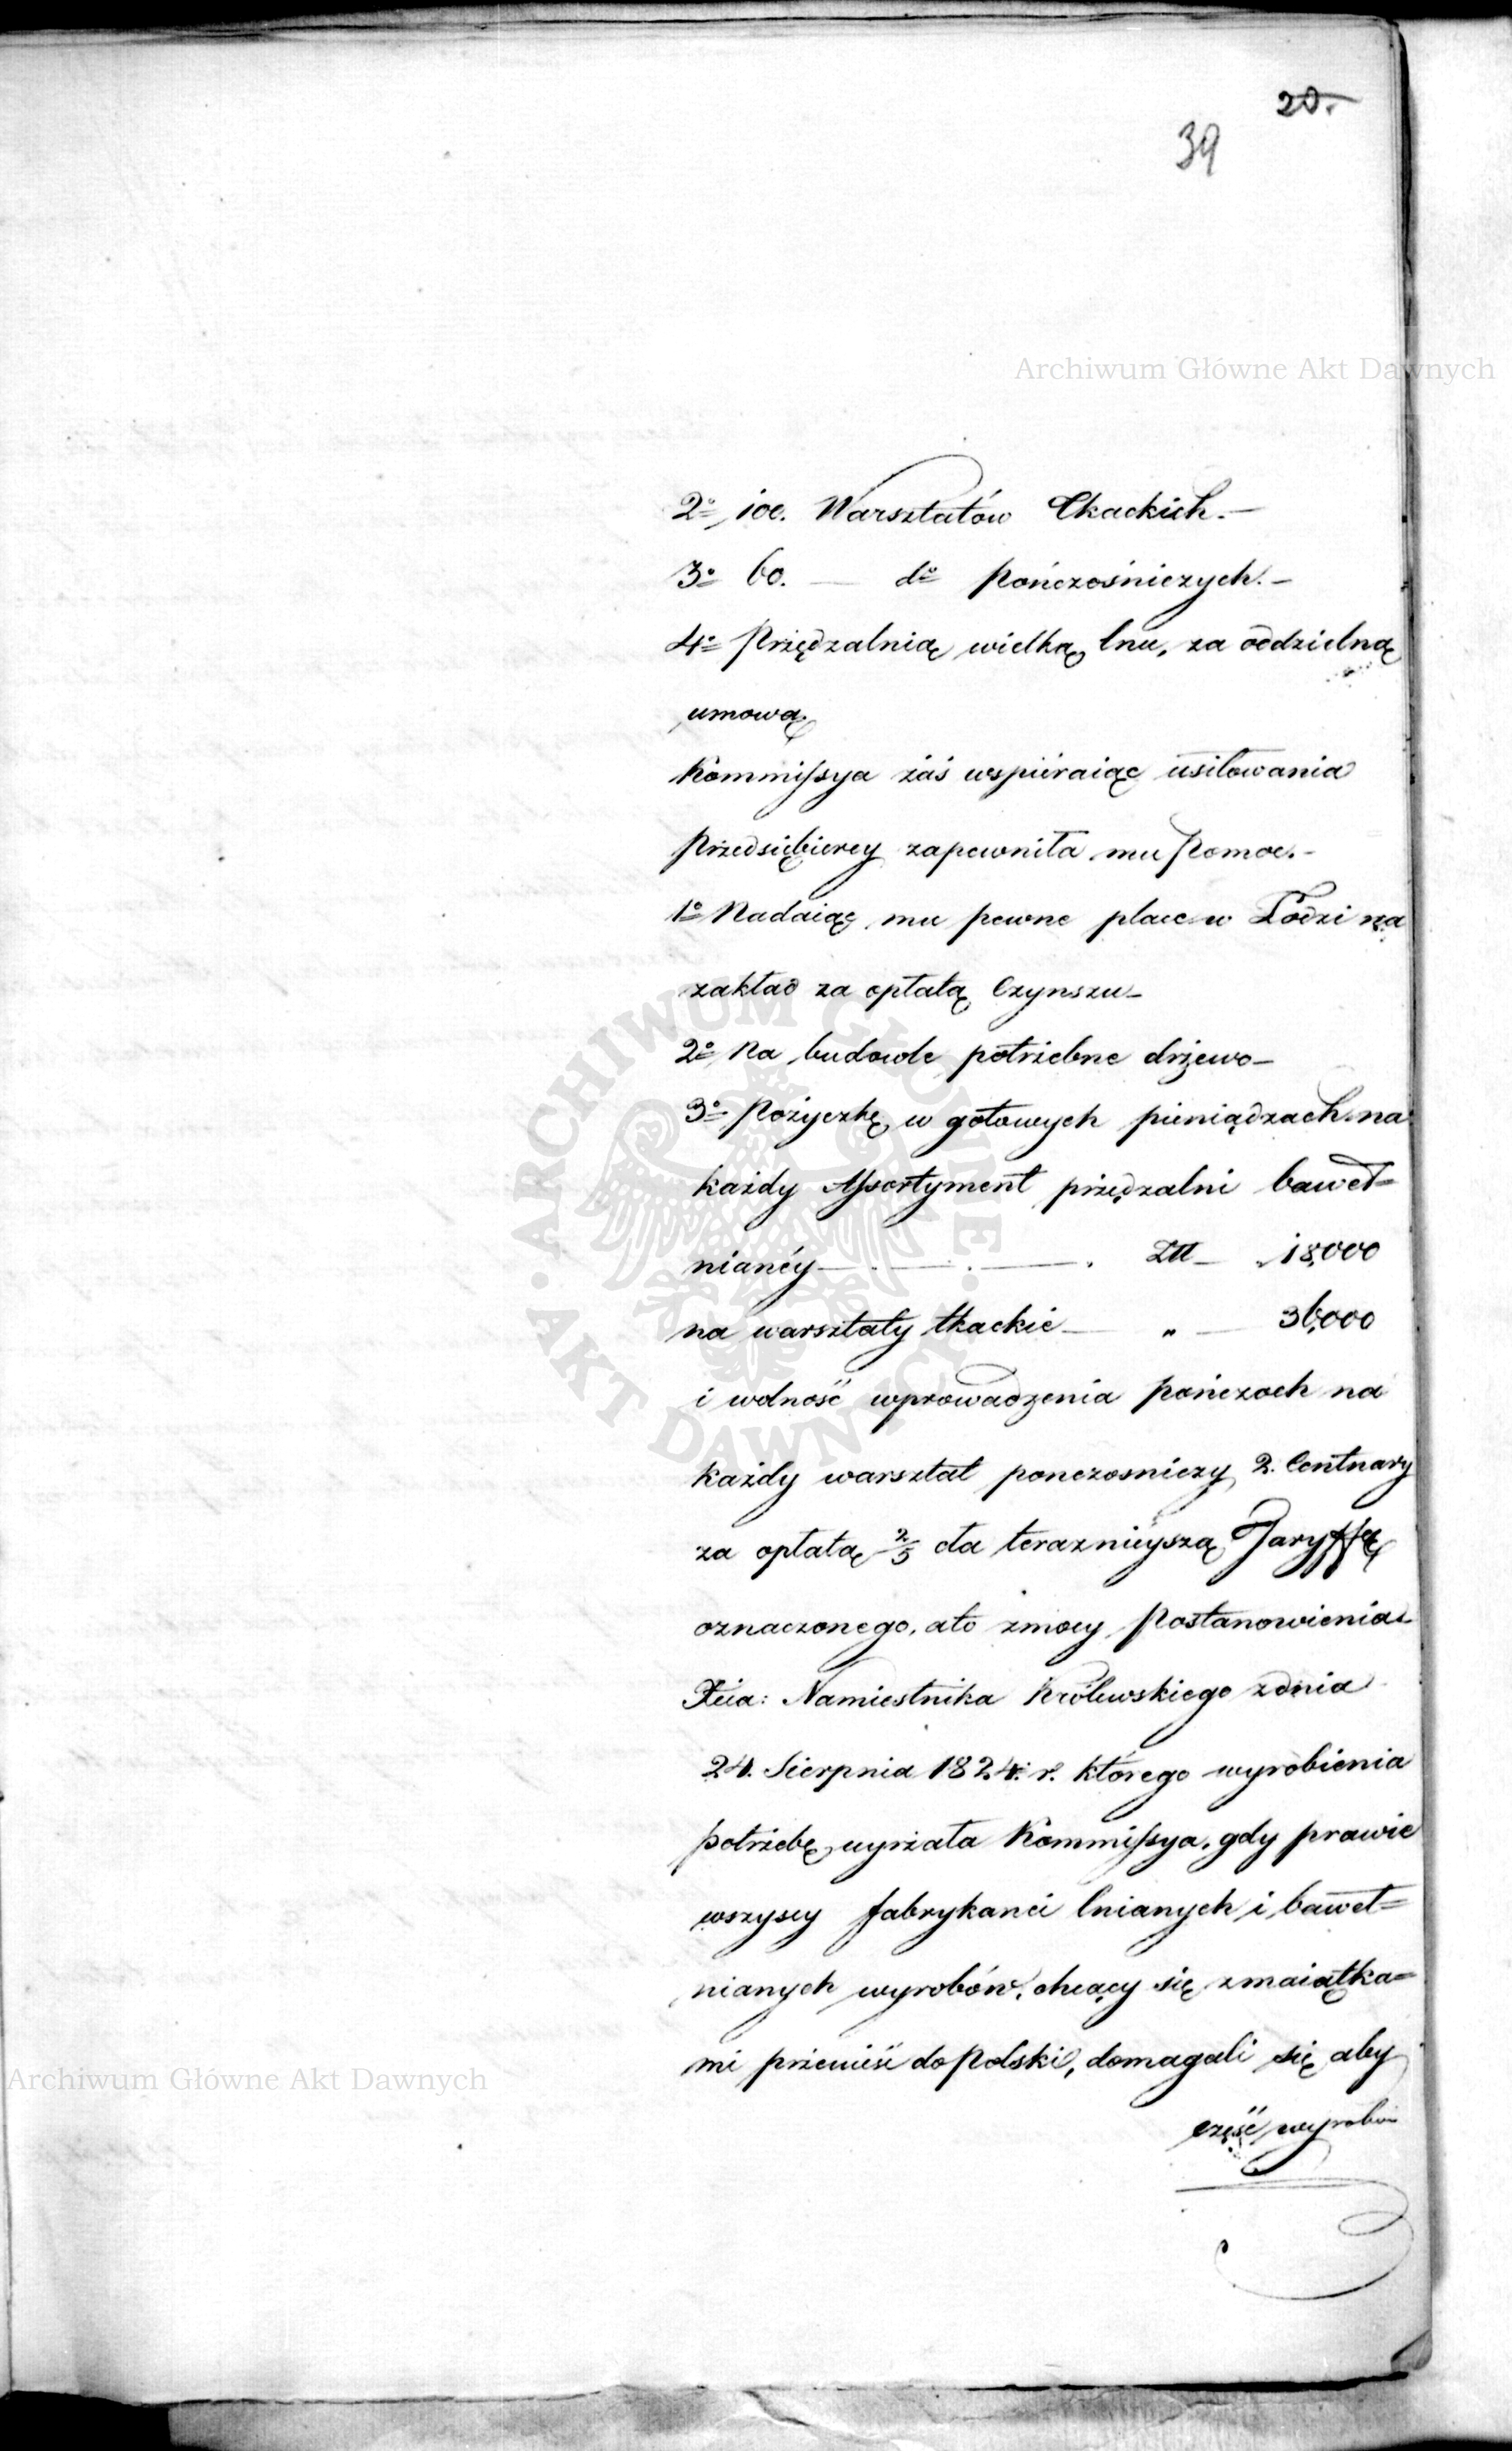 20.
39
Archiwum Główne Akt Dawnych
2o 100. Warsztatów Tkackich.—
3o 60. — do Pończośniczych.—
4o Przędzalnią wielką lnu, za oddzielną
umową.
Kommissya zaś wspieraiąc usiłowania
Przedsiębiercy zapewniła mu Pomoc.—
1o Nadaiąc mu pewne place w Łodzi na
zakład za opłatą Czynszu—
2o Na budowle potrzebne drzewo—
3o Pożyczkę w gotowych pieniądzach na
każdy Assortyment przędzalni baweł=
nianéy — . — . — . Złł — „ 18,000
na warsztaty tkackie — „ — 36,000
i wolność wprowadzenia pończoch na
każdy warsztat ponczosniczy 2. Centnary
za opłatą 2/5 cła teraznieyszą Taryffą
oznaczonego, ato zmocy Postanowienia
Xcia: Namiestnika Królewskiego zdnia
24. Sierpnia 1824. r. którego wyrobienia
potrzebę uyrzała Kommissya, gdy prawie
wszyscy fabrykanci lnianych i baweł=
nianych wyrobów, chcący się zmaiątka=
mi przenieść do Polski, domagali się aby
część wyrobów
Archiwum Główne Akt Dawnych
ARCHIWUM GŁÓWNE AKT DAWNYCH